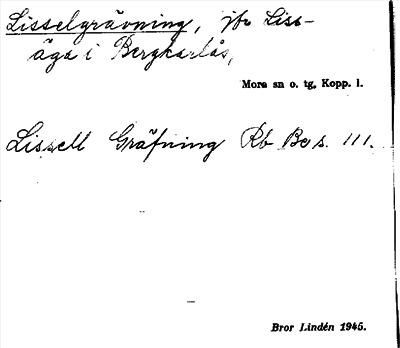 Lisselgrävning, jfr Liss-
äga i Bergkarlås,
Mora sn o. tg, Kopp. l.
Lissell Gräfning Rb Bo s. 111.
Bror Lindén 1945.